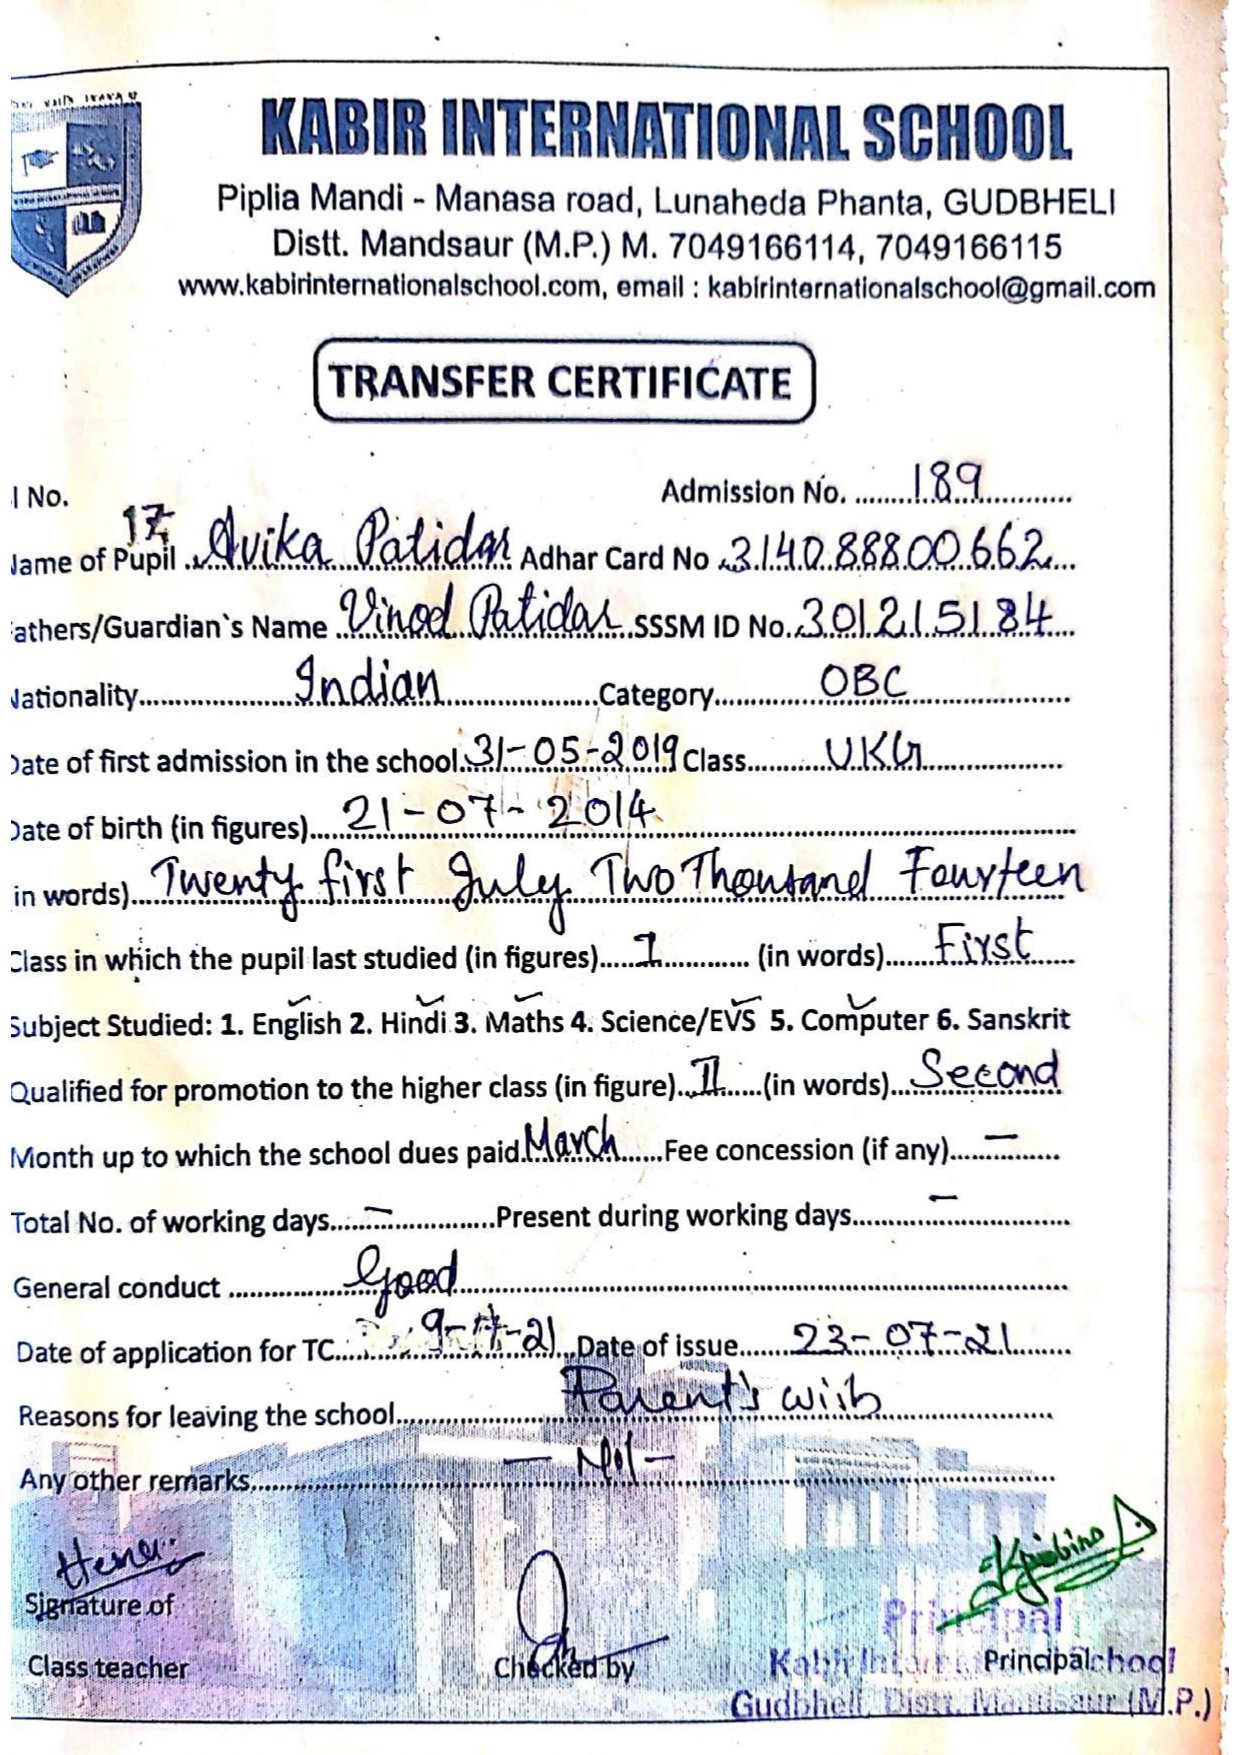 KABIR INTERNATIONAL SCHOOL
Piplia Mandi - Manasa road, Lunaheda Phanta, GUDBHELI
Distt. Mandsaur (M.P.) M. 7049166114, 7049166115
www.kabirinternationalschool.com, email : kabirinternationalschool@gmail.com
TRANSFER CERTIFICATE
l No. 17 Admission No. 189
Name of Pupil Avika Patidar Adhar Card No 314088800662
Fathers/Guardian`s Name Vinod Patidar SSSM ID No. 301215184
Nationality Indian Category OBC
Date of first admission in the school 31-05-2019 Class UKG
Date of birth (in figures) 21-07-2014
in words) Twenty first July Two Thousand Fourteen
Class in which the pupil last studied (in figures) I (in words) First
Subject Studied: 1. English 2. Hindi 3. Maths 4. Science/EVS 5. Computer 6. Sanskrit
Qualified for promotion to the higher class (in figure) II (in words) Second
Month up to which the school dues paid March Fee concession (if any) —
Total No. of working days — Present during working days —
General conduct Good
Date of application for TC Date of issue 23-07-21
Reasons for leaving the school Parent's wish
Any other remarks — Nil -
Signature of
Class teacher
Checked by
Principal
Principal
Kabir International School
Gudbheli, Distt. Mandsaur (M.P.)